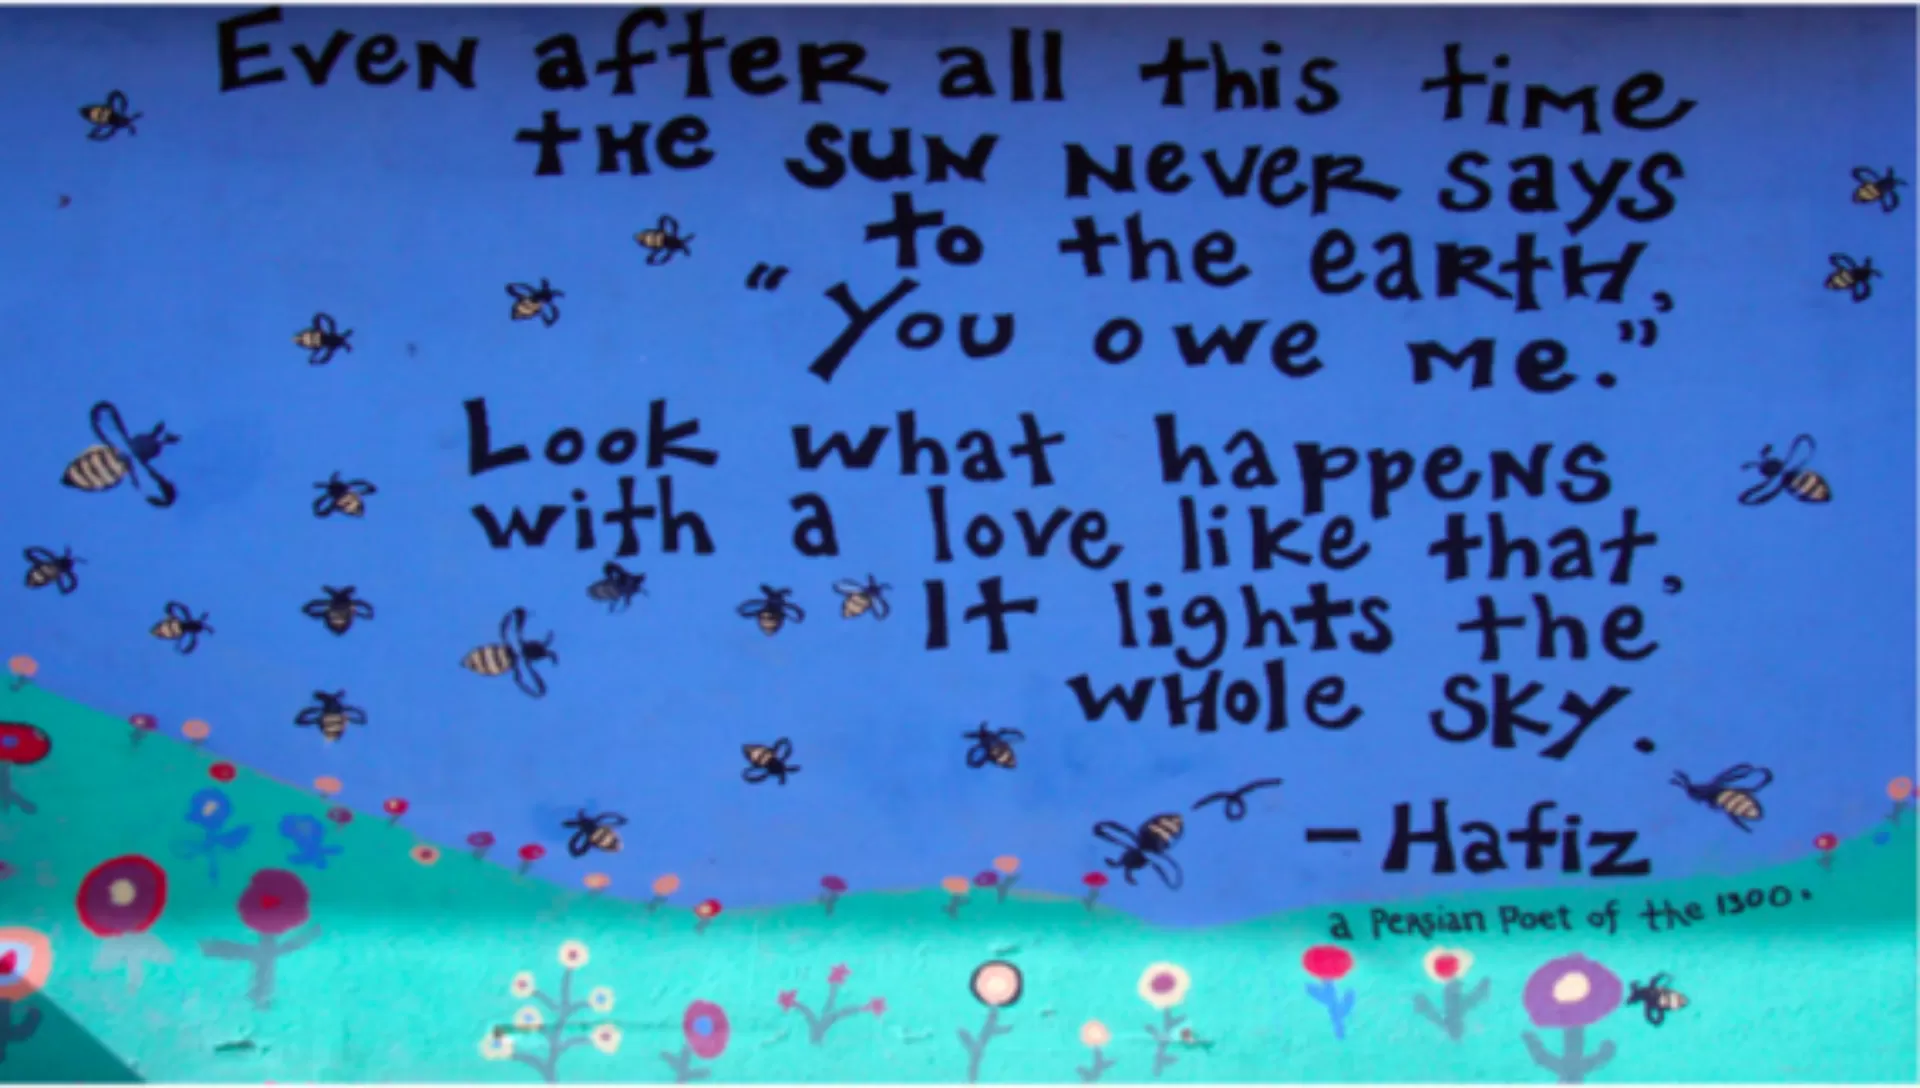 Even after all this time
the sun never says
to the earth,
"You owe me."
Look what happens
with a love like that,
It lights the
whole sky.
- Hafiz
a Persian Poet of the 1300.